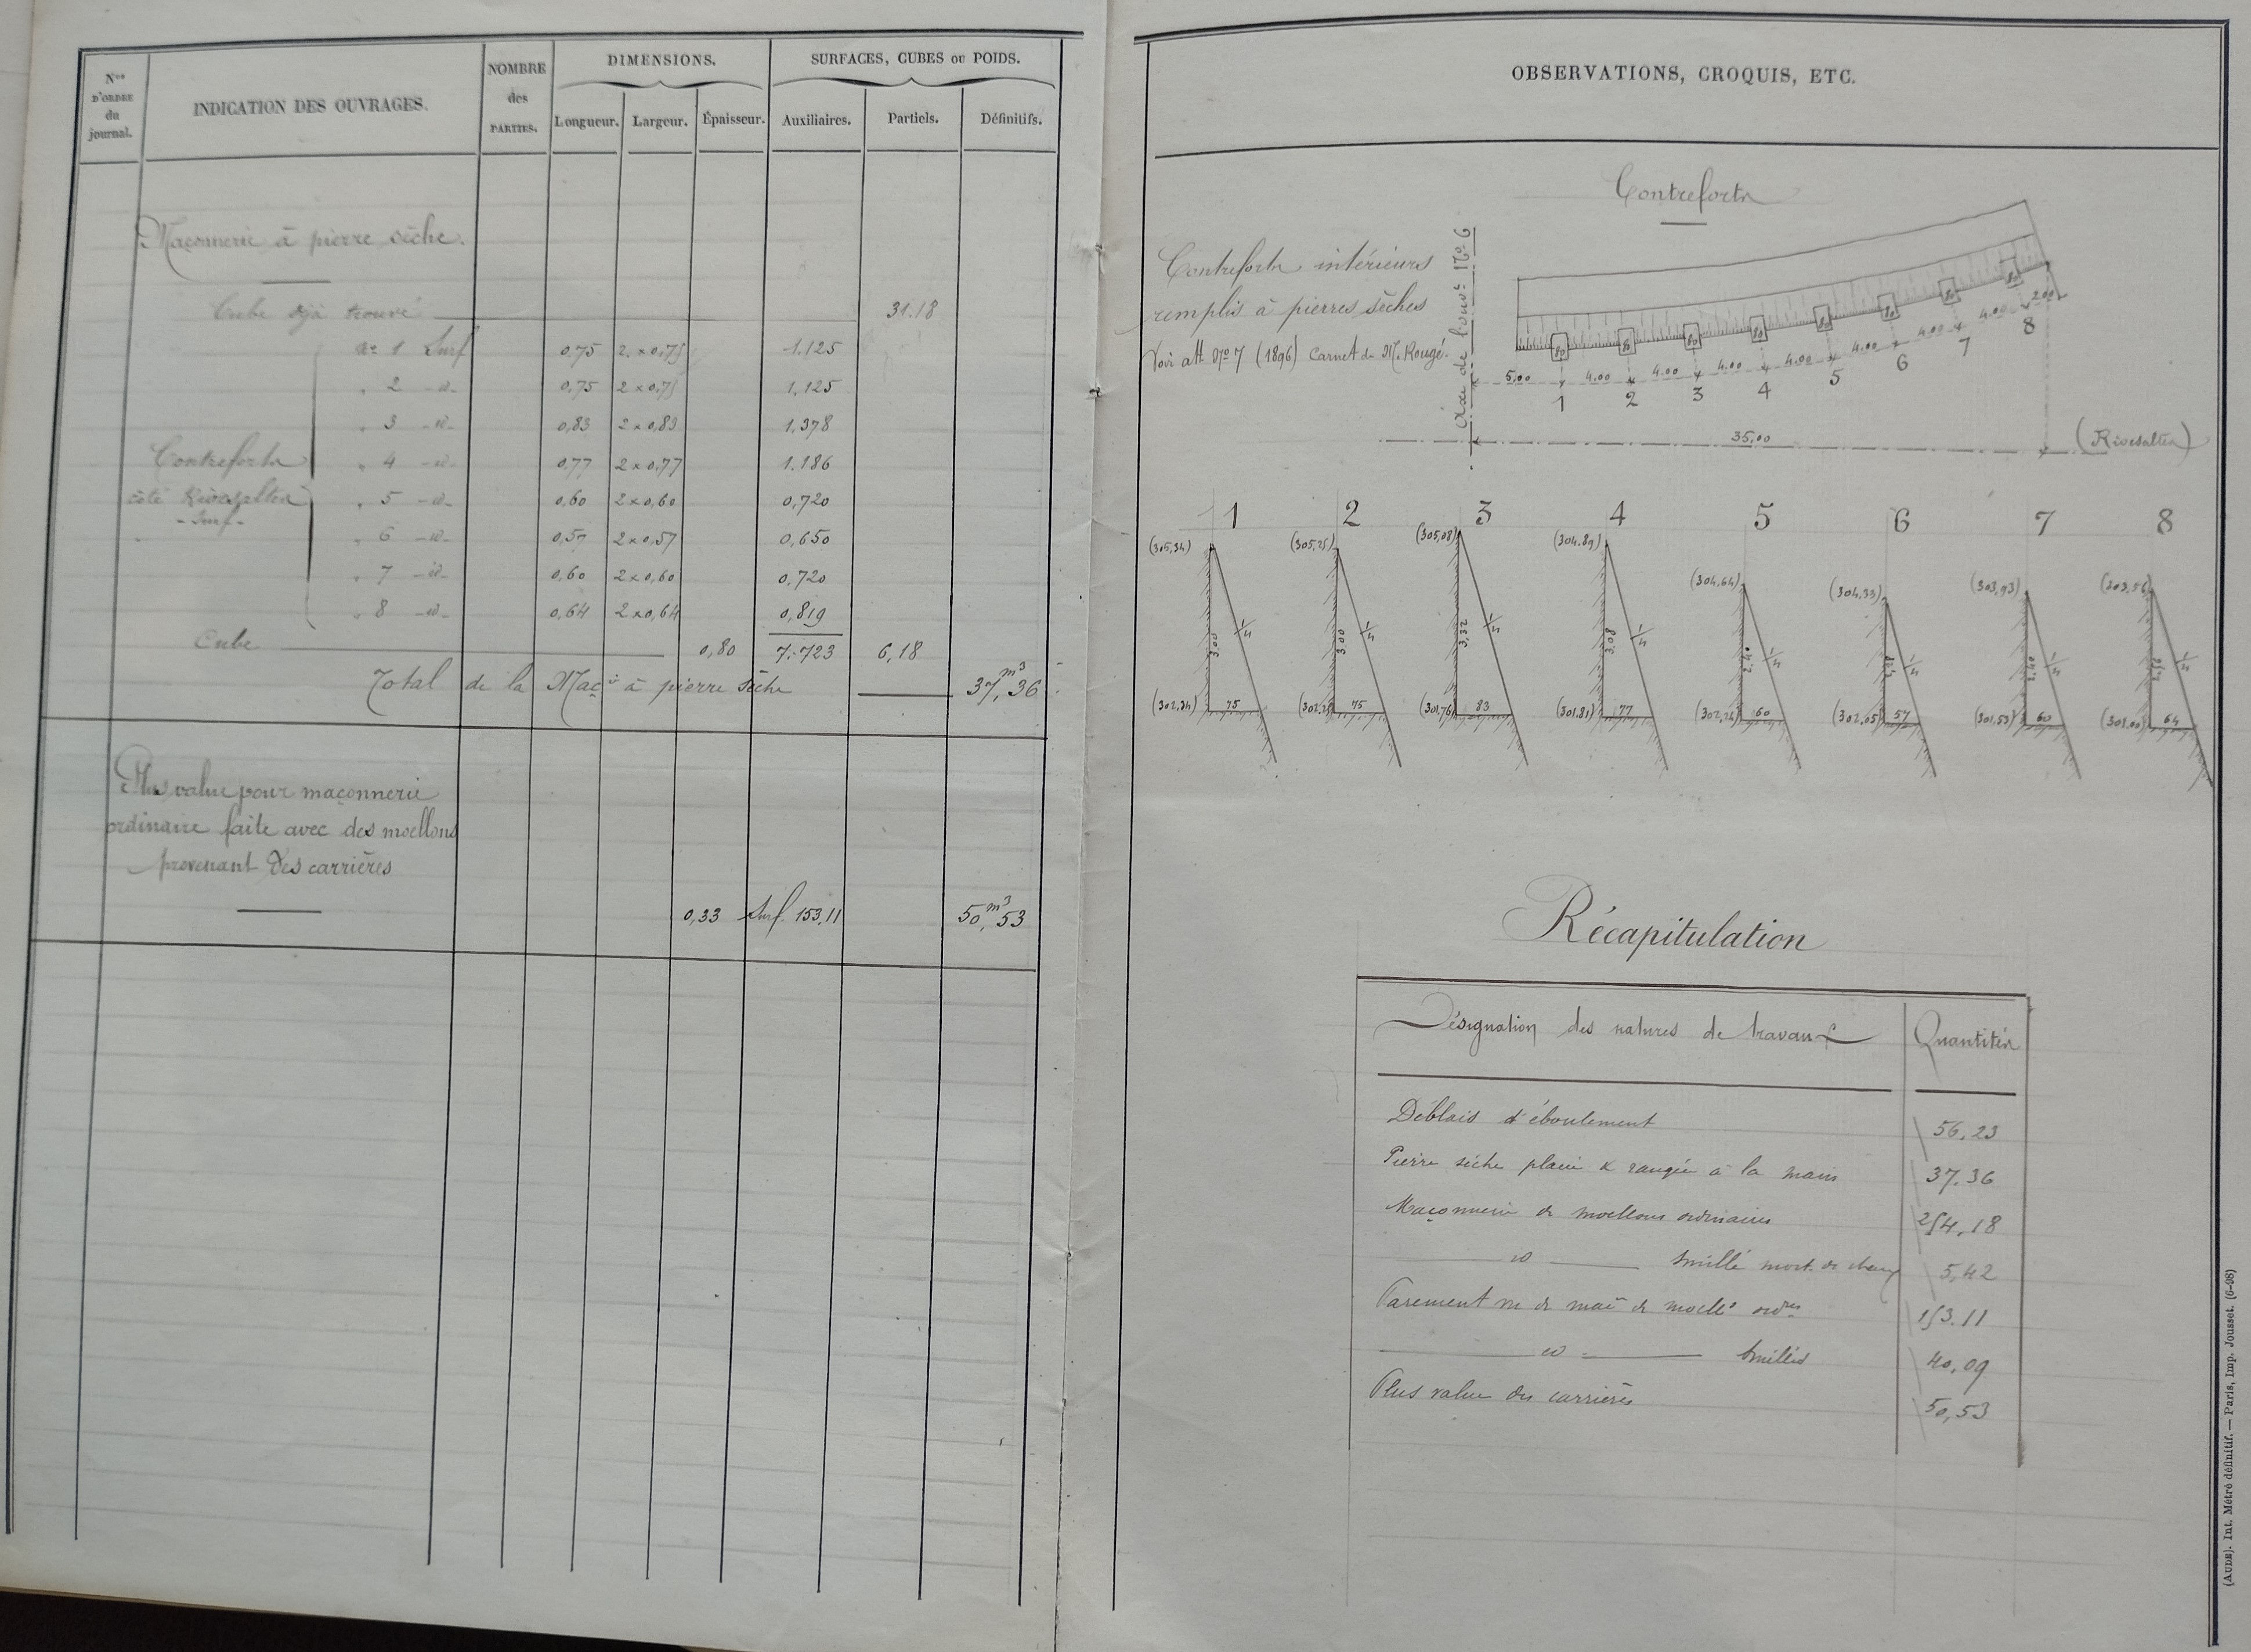 Nos D'ORDRE du journal.
INDICATION DES OUVRAGES.
NOMBRE des PARTIES.
DIMENSIONS.
Longueur. Largeur. Épaisseur.
SURFACES, CUBES ou POIDS.
Auxiliaires. Partiels. Définitifs.
Maçonnerie à pierre sèche.
Cube déjà trouvé 31.18
No 1 Surf 0,75 2 × 0,75 1.125
" 2 -d- 0,75 2 × 0,75 1,125
" 3 -d- 0,83 2 × 0,83 1,378
Contreforts " 4 -d- 0,77 2 × 0,77 1.186
côté Rivesaltes " 5 -d- 0,60 2 × 0,60 0,720
- Surf -
" 6 -d- 0,57 2 × 0,57 0,650
" 7 -d- 0,60 2 × 0,60 0,720
" 8 -d- 0,64 2 × 0,64 0,819
Cube 0,80 7.723 6,18
Total de la Maçie à pierre sèche 37,m3 36
Plus value pour maçonnerie
ordinaire faite avec des moellons
provenant des carrières
0,33 Surf. 153,11 50,m3 53
OBSERVATIONS, CROQUIS, ETC.
Contreforts
Contreforts intérieurs
remplis à pierres sèches
Voir att. No 7 (1896) Carnet de M. Rougé.
Axe de l'ouvr No 6
80 80 80 80 80 80 80 80
5,00 4.00 4.00 4.00 4.00 4.00 4.00 4.00 2.00
1 2 3 4 5 6 7 8
35,00
(Rivesaltes)
1 2 3 4 5 6 7 8
(305,34) (305,25) (305,08) (304.89) (304.64) (304.33) (303,93) (303,56)
3,00 3,00 3,32 3,08 2,40 2,40
1/4 1/4 1/4 1/4 1/4 1/4 1/4 1/4
(302.34) 75 (302.25) 75 (301.76) 83 (301.81) 77 (302,24) 60 (302.05) 57 (301.53) 60 (301.00) 64
Récapitulation
Désignation des natures de travaux Quantités
Déblais d'éboulement 56.23
Pierre sèche placée & rangée à la main 37.36
Maçonnerie de moellons ordinaires 254.18
d smillé mort. de chaux 5,42
Parement vu de maçie de moells ordres 153.11
d smillés 40,09
Plus value des carrières 50,53
(AUDE). Int. Métré définitif. — Paris, Imp. Jousset. (6-98)